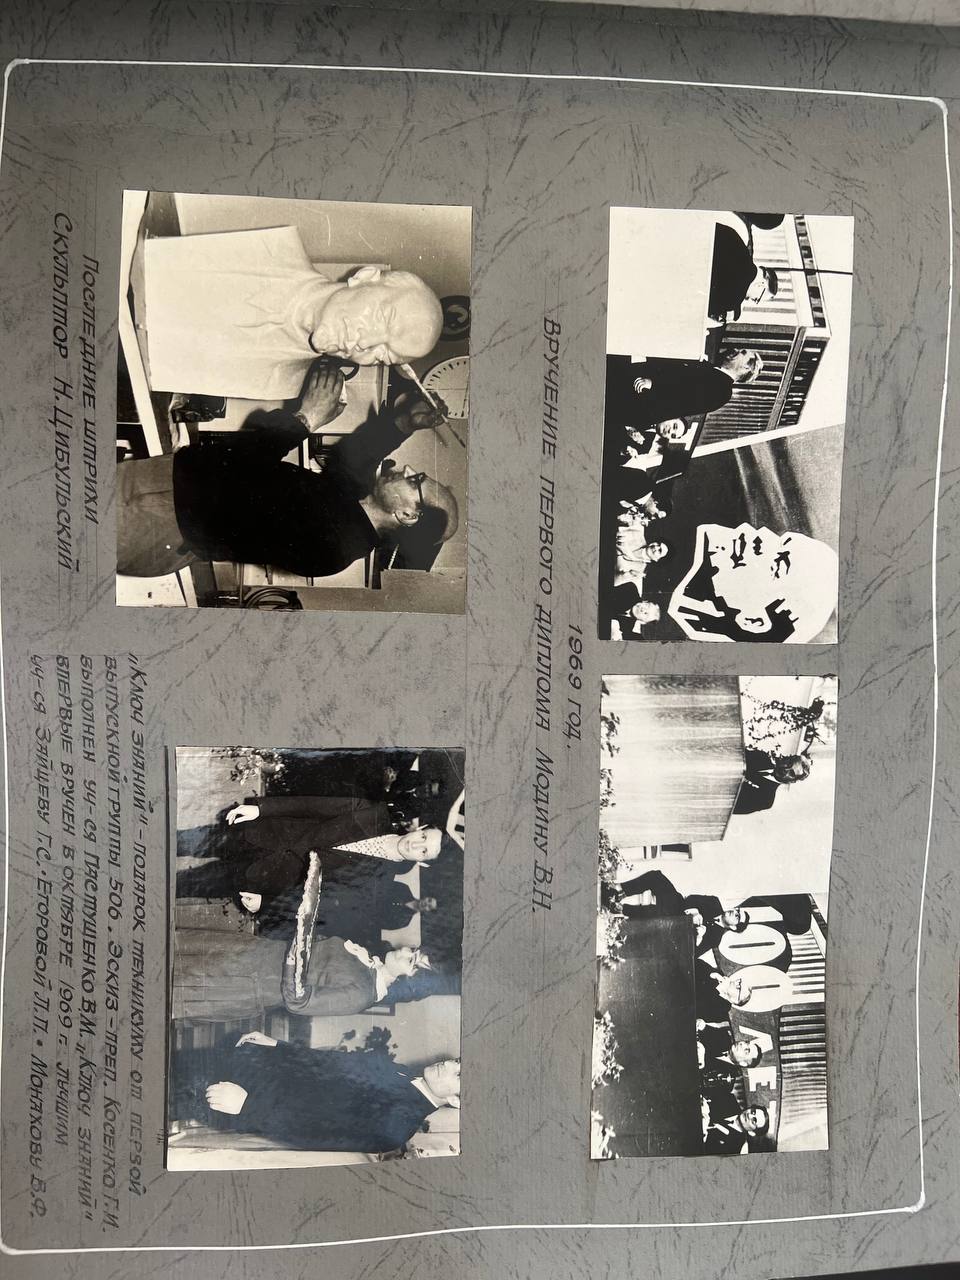 100 ЛЕТ
1969 ГОД.
ВРУЧЕНИЕ ПЕРВОГО ДИПЛОМА МОДИНУ В.Н.
ПОСЛЕДНИЕ ШТРИХИ
СКУЛЬПТОР Н. ЦИБУЛЬСКИЙ
„КЛЮЧ ЗНАНИЙ" – ПОДАРОК ТЕХНИКУМУ ОТ ПЕРВОЙ
ВЫПУСКНОЙ ГРУППЫ 506. ЭСКИЗ – ПРЕП. КОСЕНКО Г.И.
ВЫПОЛНЕН УЧ-СЯ ПАСТУЩЕНКО В.М. „КЛЮЧ ЗНАНИЙ"
ВПЕРВЫЕ ВРУЧЕН В ОКТЯБРЕ 1969 г. ЛУЧШИМ
УЧ-СЯ ЗАЙЦЕВУ Г.С. • ЕГОРОВОЙ Л.П. • МОНАХОВУ В.Ф.